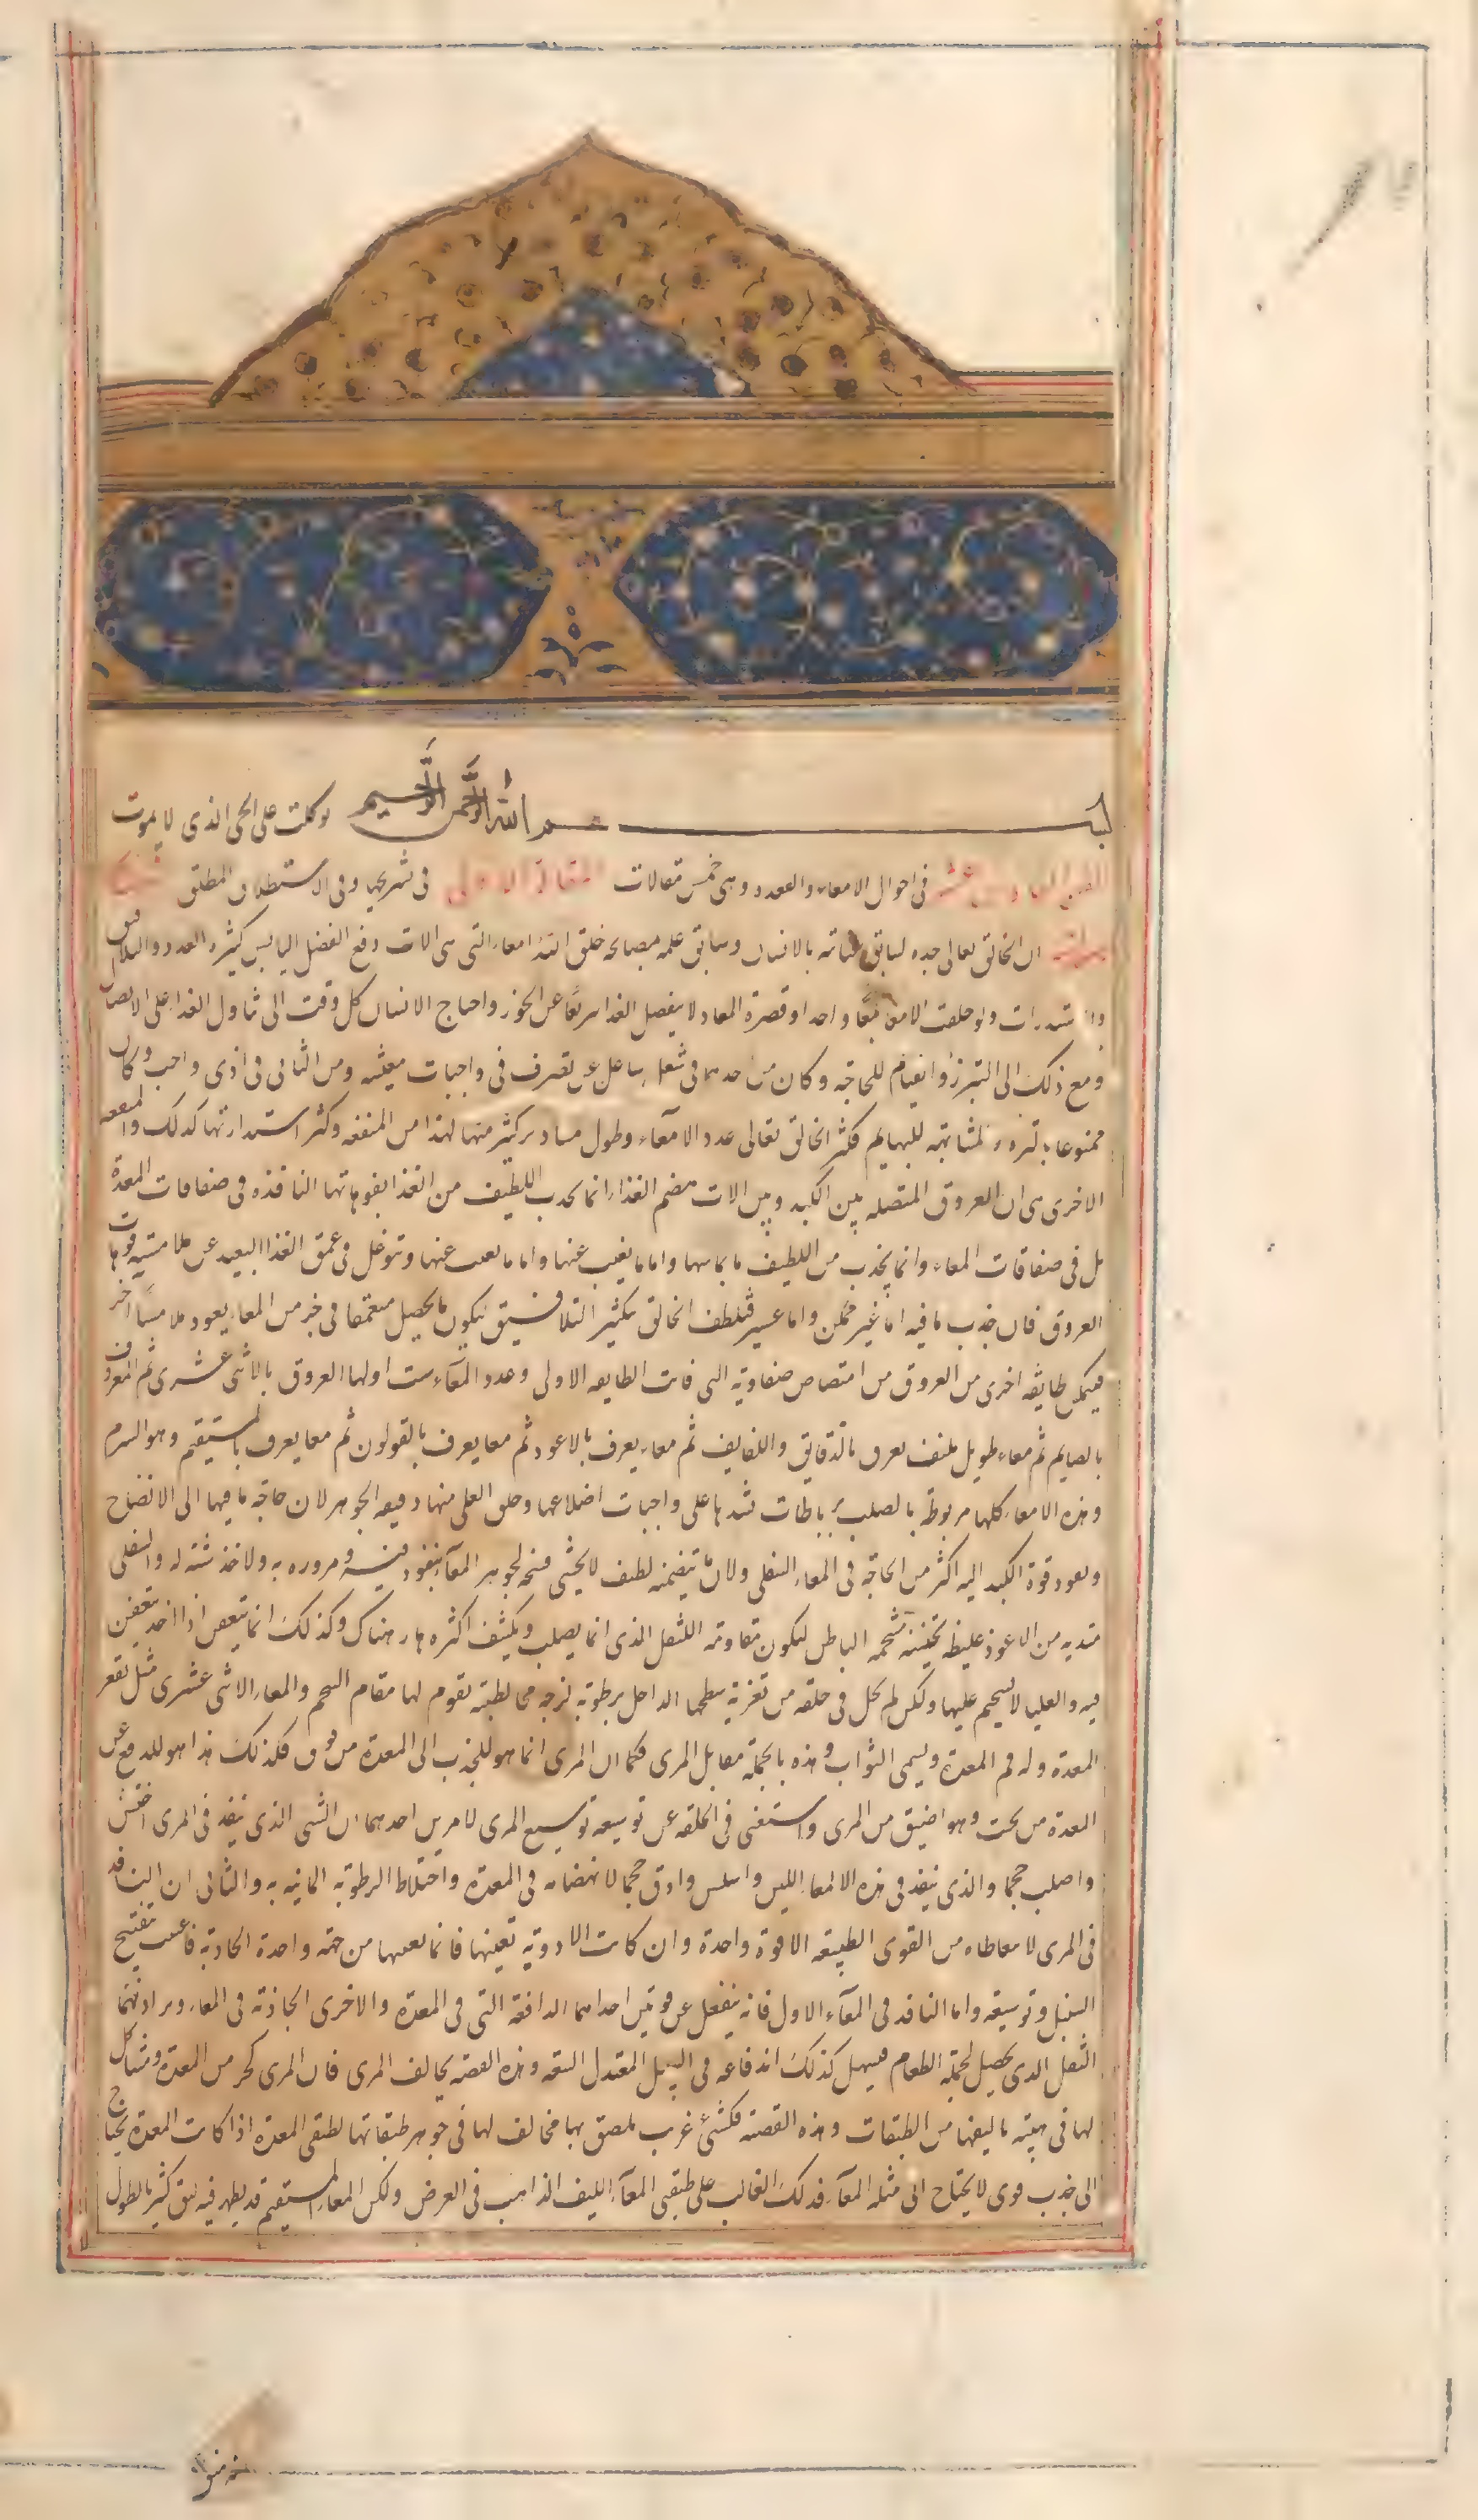 بسم الله الرحمن الرحيم توكلت على الحى الذى لا يموت
الفن السادس عشر فى احوال الامعاء والمقعده وهى خمس مقالات المقالة الاولى فى تشريحها وفى الاستطلاق المطلق فصل فى
تشريح الامعاء ان الخالق تعالى جده لسابق عنايته بالانسان وسابق علمه بمصالحه خلق امعاءه التى هى الات دفع الفضل اليابس كثيره العدد والتلافيف
والاستدارات ولو خلقت الامعاء معا واحدا او قصيرة المقادير لانفصل الغذا سريعا عن الجوف واحتاج الانسان كل وقت الى تناول الغذا على الاتصال
ومع ذلك الى التبرز والقيام للحاجه وكان من احدهما فى شغل شاغل عن تصرفه فى واجبات معيشته ومن الثانى فى اذى واصب وكان
ممنوعا بالشره والمشابهه للبهايم فكثر الخالق تعالى عدد الامعاء وطول مقادير كثير منها لهذا من المنفعه وكثر استدارتها كذلك والمنفعه
الاخرى هى ان العروق المتصله بين الكبد وبين الات هضم الغذاء انما تجذب اللطيف من الغذا بفوهاتها النافذه فى صفاقات المعدة
بل فى صفاقات المعاء وانما تجذب من اللطيف ما يماسها واما ما يغيب عنها وتوغل فى عمق الغذا البعيد عن ملامسة فوهات
العروق فان جذب ما فيه اما غير ممكن واما عسير فتلطف الخالق بتكثير التلافيف ليكون ما يحصل متعمقا فى جزء من المعاء يعود ملامسا فى اخر
فيمكن طايفه اخرى من العروق من امتصاص صفاوته التى فاتت الطايفه الاولى وعدد الامعاء ست اولها المعروف بالاثنى عشرى ثم المعروف
بالصايم ثم معاء طويل ملتف يعرف بالدقاق واللفايف ثم معاء يعرف بالاعور ثم معا يعرف بالقولون ثم معا يعرف بالمستقيم وهو السرم
وهذه الامعاء كلها مربوطة بالصلب برباطات تشدها على واجبات اوضاعها وخلق العلى منها دقيقه الجوهر لان حاجة ما فيها الى الانضاج
ونفوذ قوة الكبد اليه اكثر من الحاجة فى المعاء السفلى ولان ما يتضمنه لطيف لا يخشى فسخه لجوهر المعاء بنفوذه فيه ومروره به ولا خدشته له والسفلى
مبتديه من الاعور غليظه ثخينه مشحمه الباطن لتكون مقاومة للثفل الذى انما يصلب ويكثف اكثره هناك وكذلك انما يتعفن اذا اخذ يتعفن
فيه والعليا لا شحم عليها ولكن لم يخل فى خلقه من تغرية سطحها الداخل برطوبة لزجه مخاطية تقوم لها مقام الشحم والمعاء الاثنى عشرى متصل بقعر
المعدة وله فم المعدة ويسمى البواب وهذه بالجملة مقابل المرى فكما ان المرى انما هو للجذب الى المعدة من فوق فكذلك هذا هو للدفع عن
المعدة من تحت وهو اضيق من المرى واستغنى فى الخلقه عن توسيعه توسيع المرى لامرين احدهما ان الشى الذى ينفذ فى المرى اخشن
واصلب حجما والذى ينفذ فى هذه الامعاء الين واسلس وادق حجما لانهضامه فى المعدة واختلاط الرطوبة المائية به والثانى ان النافذ
فى المرى لا يتعاطاه من القوى الطبيعه الا قوة واحدة وان كانت الارادية تعينها فانما تعينها من جهة واحدة الجاذبة فاعينت بتفتيح
السبيل وتوسيعه واما النافذ فى المعاء الاول فانه ينفعل عن قوتين احداهما الدافعة التى فى المعدة والاخرى الجاذبة فى المعاء ويرافدهما
الثفل الذى يحصل لجملة الطعام فيسهل كذلك اندفاعه فى السبيل المعتدل السعه وهذه القصه تخالف المرى فان المرى كجزء من المعدة ومشاكل
لها فى هيئة تاليفها من الطبقات وهذه القصة فكشئ غريب ملصق بها مخالف لها فى جوهر طبقاتها لطبقتى المعدة اذا كانت المعدة تحتاج
الى جذب قوى لا يحتاج الى مثله المعاء فلذلك الغالب على طبقتى المعاء الليف الذاهب فى العرض ولكن المعاء المستقيم قد يظهر فيه ليف كثير بالطول